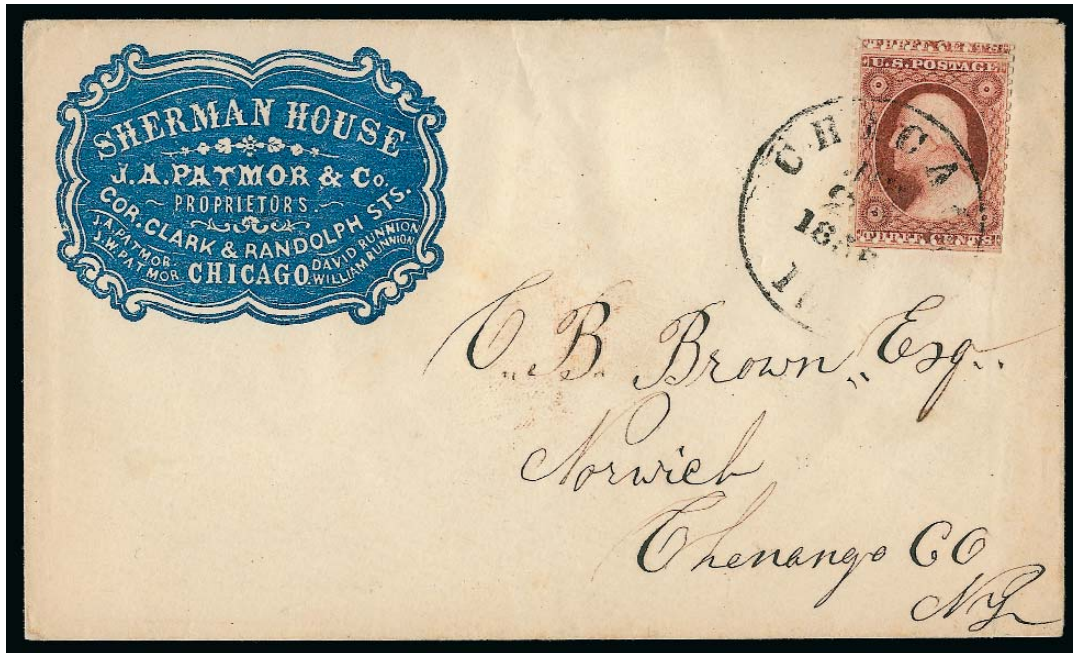 SHERMAN HOUSE
J.A. PATMOR & Co.
PROPRIETORS.
COR. CLARK & RANDOLPH STS.
J.A. PATMOR.
J.W. PATMOR.
CHICAGO.
DAVID RUNNION
WILLIAM RUNNION
THREE CENTS
U.S. POSTAGE
THREE CENTS
CHICA
C. B. Brown, Esq.
Norwich
Chenango CO
NY